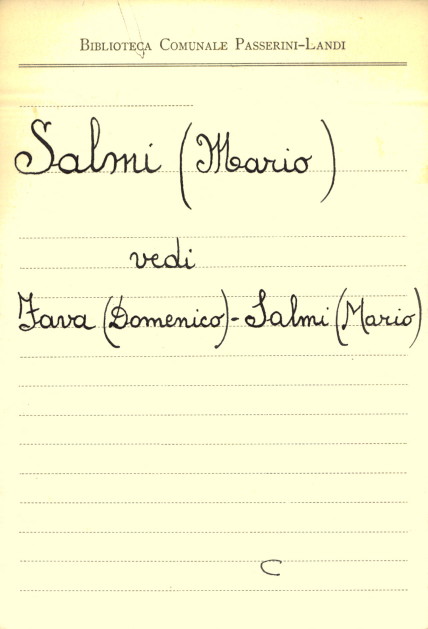 Biblioteca Comunale Passerini-Landi
Salmi (Mario)
vedi
Fava (Domenico) - Salmi (Mario)
C